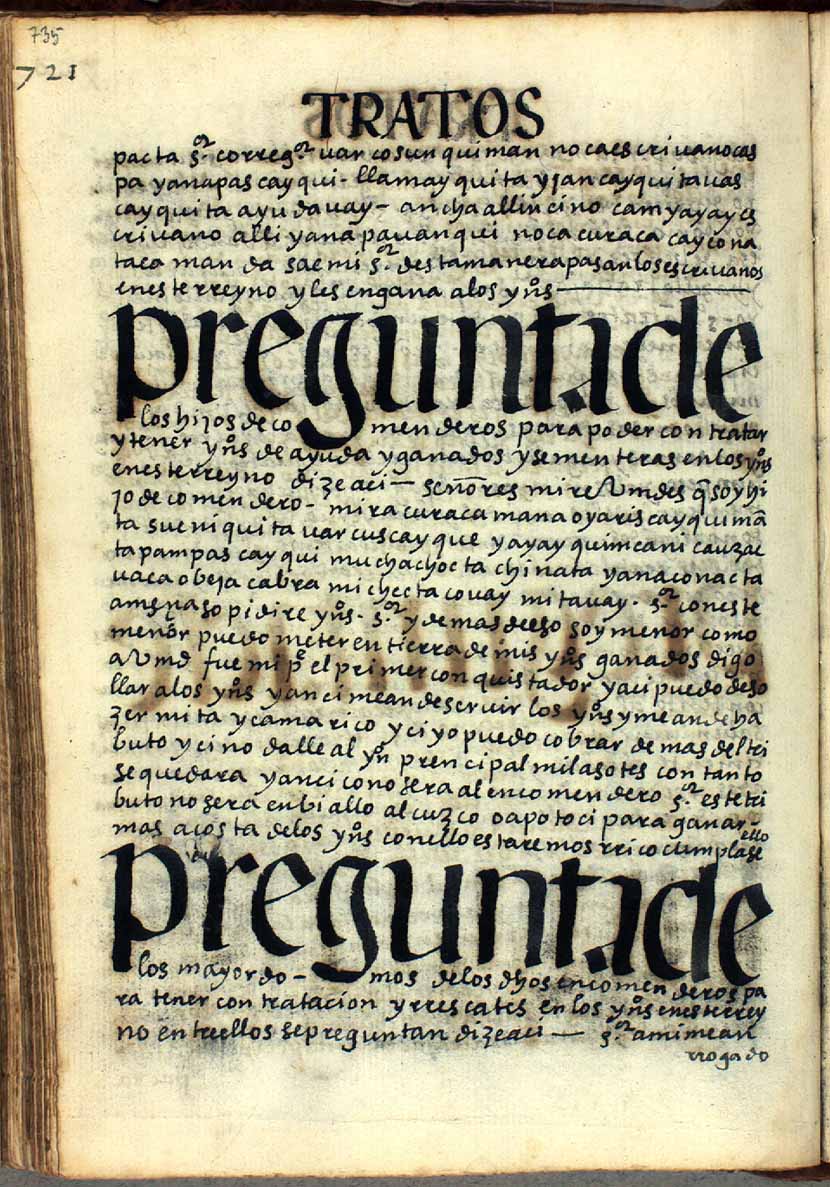 735
721
TRATOS
pacta s.or correg.or uarcosunquiman nocaescriuanocas
pa yanapascayqui - llamayquita yjancayquitauas
cayquita ayudauay - ancha allin cino camyayayes
criuano alli yanapauanqui noca curaca caycona
taca mandasac mi s.or desta manera pasan los escriuanos
en este rreyno y les engana a los yn̄s
preguntade
los hijos de co menderos para poder contratar
y tener yn̄s de ayuda y ganados y sementeras en los yn̄s
en este rreyno dize aci - señores mire Vmdes q̄ soy hi
jo de comendero - mira curaca mana oyariscayquimā
ta sueniquita uarcuscayque yayay quimcani cauzac
tapampas cayqui muchachocta chinata yanaconacta
uaca obeja cabra michecta couay mitauay . s.or con este
pidire yn̄s . s.or y demas deeso soy menor como
menōr puedo meter en tierra de mis yn̄s ganados digo
a Vmd fue mi p.e el primer conquistador y aci puedo deso
llar a los yn̄s y anci me an de seruir los yn̄s y me an de ha
zer mita y camarico y ci yo puedo cobrar demas del tri
buto y ci no dalle al yn̄ prencipal mil asotes con tanto
se quedara y anci cono sera al encomendero s.or este tri
buto no sera enbiallo al cuzco o a potoci para ganar
mas a costa de los yn̄s con ello estaremos rrico cunplase
ello
preguntade
los mayordo - mos de los dhos encomenderos pa
ra tener contratacion y rrescates en los yn̄s en este rrey
no entre ellos se preguntan dize aci — s.or a mi me an
rrogado